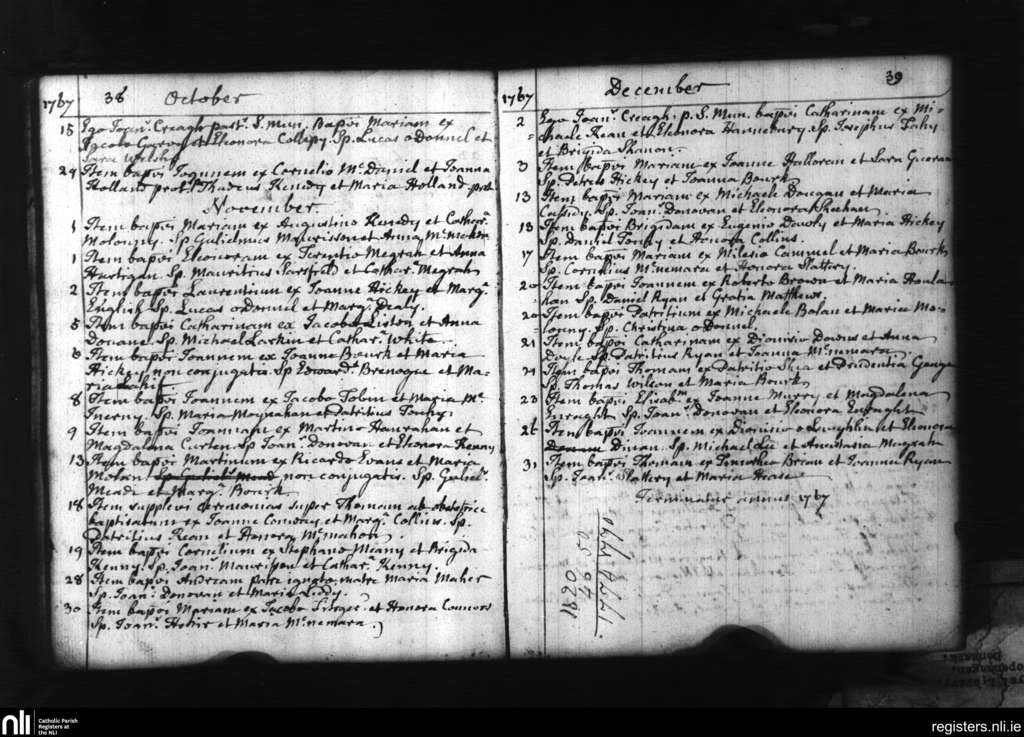 1767 38 October
15 Ego Joan: Creagh past: S. Mun: Bapvi Mariam ex
Jacobo Garvey et Eleonora Sp. Lucas o Donnel et
Sara Welsh
24 Item bapvi ex Cornelio Mc. Daniel et Joanna
Holland prot: Thadeus Kenedy et Maria Holland prot.
November.
1 Item bapvi Mariam ex Augustino Kenedy et Cathar:
Molouny. Sp Gulielmus Maurisson et Anna
1 Item bapvi Eleonoram ex Terentio Megrah et Anna
Hartigan. Sp. Mauritius Sarsfield et Cathar: Megrah
2 Item bapvi Laurentium ex Joanne Hickey et Marg:
English Sp. Lucas o Donnel et Marg: Dealy.
5 Item bapvi Catharinam ex Jacobo Liston et Anna
Douane. Sp. Michael Larkin et Cathar: White.
6 Item bapvi Joannem ex Joanne Bourk et Maria
Hickey non conjugatis. Sp Edward: et Ma-
ria
8 Item bapvi Joannem ex Jacobo Tobin et Maria Mc.
Inerny. Sp. Maria Moynahan et Patritius
9 Item bapvi Joannam ex Martino Hanrahan et
Magdalena Curten. Sp Joan: Donovan et Eleonora Kenny
13 Item bapvi Martinum ex Ricardo Evans et Maria
non conjugatis. Sp. Guliel:
Meade et Marg: Bourk
18 Item supplevi ceremonias super Thomam ab obstetrice
baptisatum ex Joanne Conway et Marg: Collins. Sp.
Patritius Kean et Honora Mc. mahon.
19 Item bapvi Cornelium ex Stephano Meany et Brigida
Kenny. Sp. Joan: Maurisson et Cathar: Kenny.
28 Item bapvi Andream patre ignoto matre Maria Maher
Sp. Joan: Donovan et Maria Liddy.
30 Item bapvi Mariam ex Jacobo et Honora Connors
Sp. Joan: et Maria Mc. nemara.
1767 December 39
2 Ego Joan: Creagh. p. S. Mun. bapvi Catharinam ex Mi-
chaele Kean et Eleonora Hannebury. Sp. Josephus Fahy
et Brigida Shanon.
3 Item bapvi Mariam ex Joanne Halloran et Sara
Sp. Petrus Hickey et Joanna Bourk
13 Item bapvi Mariam ex Michaele Dougan et Maria
Cassidy. Sp. Joan: Donovan et Eleonora Sheehan
13 Item bapvi Brigidam ex Eugenio et Maria Hickey
Sp. Daniel et Honora Collins.
17 Item bapvi Mariam ex Milesio Cammel et Maria Bourk
Sp. Cornelius Mc. nemara et Honora Slattery.
20 Item bapvi Joannem ex Roberto Brown et Maria Houla-
han Sp. Daniel Ryan et Gratia Matthews.
20 Item bapvi Patritium ex Michaele Bolan et Maria Mo-
lonny. Sp. Christina o Donnel.
21 Item bapvi Catharinam ex Dionisio Downs et Anna
Doyle Sp. Patritius Ryan et Joanna Mc. nemara
21 Item bapvi Thomam ex Patritio Shea et Prudentia
Sp. Thomas Wilson et Maria Bourk
23 Item bapvi ex Joanne Murry et Magdalena
Enraght Sp. Joan: Donovan et Eleonora Enraght
26 Item bapvi Joannem ex Dionisio o Loughlin et Eleonora
Dinan. Sp. Michael Lee et Anastasia Megrah
31 Item bapvi Thomam ex Timotheo Brian et Joanna Ryan
Sp. Joan: Slattery et Maria Hease
Terminatur annus 1767
nli
Catholic Parish
Registers at
the NLI
registers.nli.ie